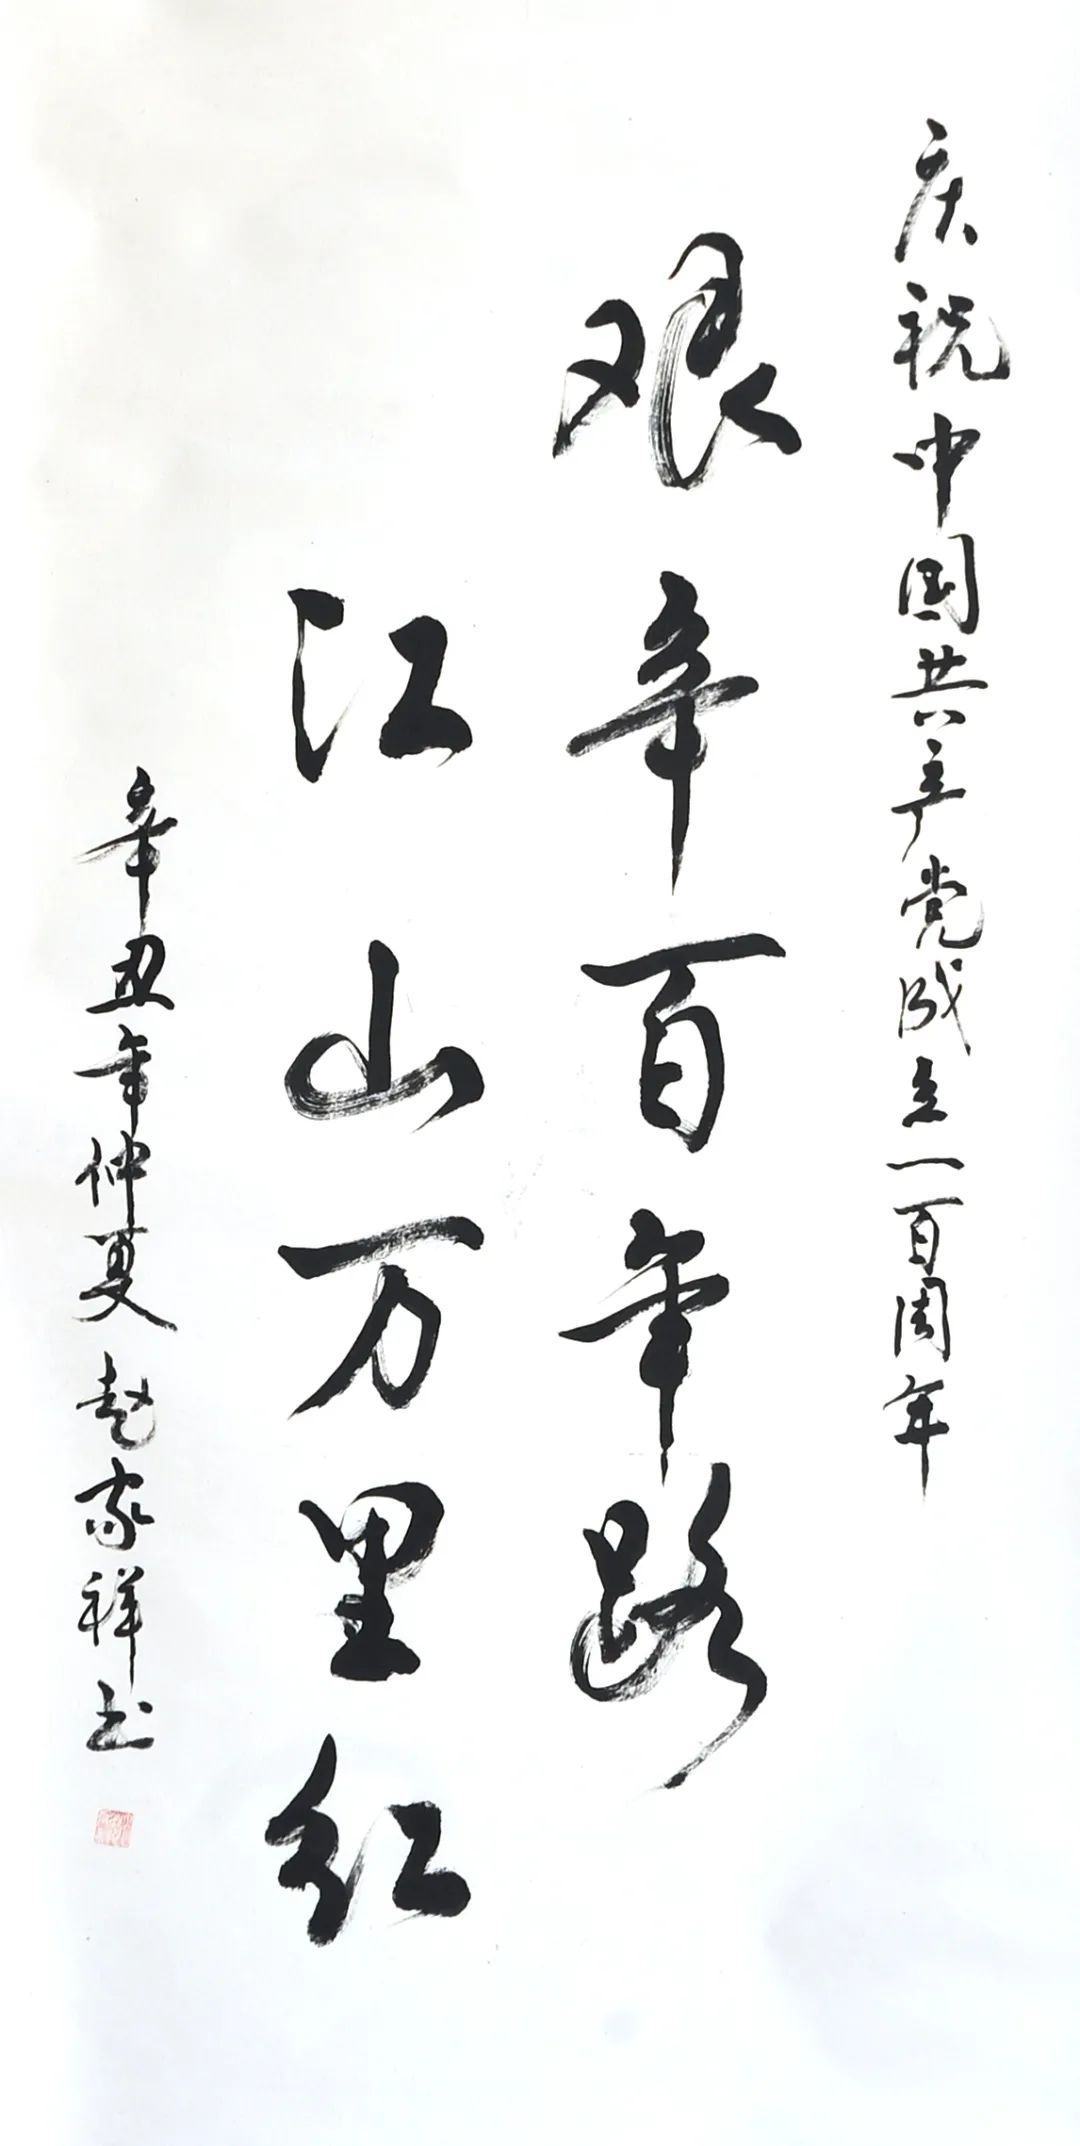 庆祝中国共产党成立一百周年
艰辛百年路
江山万里红
辛丑年仲夏赵家祥书